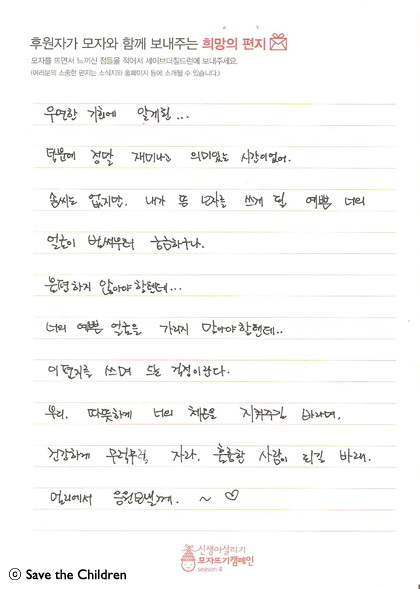 후원자가 모자와 함께 보내주는 희망의 편지
모자를 뜨면서 느끼신 점들을 적어서 세이브더칠드런에 보내주세요.
(여러분의 소중한 편지는 소식지와 홈페이지 등에 소개될 수 있습니다.)
우연한 기회에 알게된...
덕분에 정말 재미나고 의미있는 시간이었어.
솜씨는 없지만, 내가 뜬 모자를 쓰게 될 예쁜 너의
얼굴이 벌써부터 궁금하구나.
불편하지 않아야 할텐데...
너의 예쁜 얼굴을 가리지 말아야할텐데..
이 편지를 쓰며 드는 걱정이란다.
부디, 따뜻하게 너의 체온을 지켜주길 바라며,
건강하게 무럭무럭 자라, 훌륭한 사람이 되길 바래.
멀리에서 응원보낼게. ~ ♡
신생아살리기
모자뜨기캠페인
season 4
ⓒ Save the Children